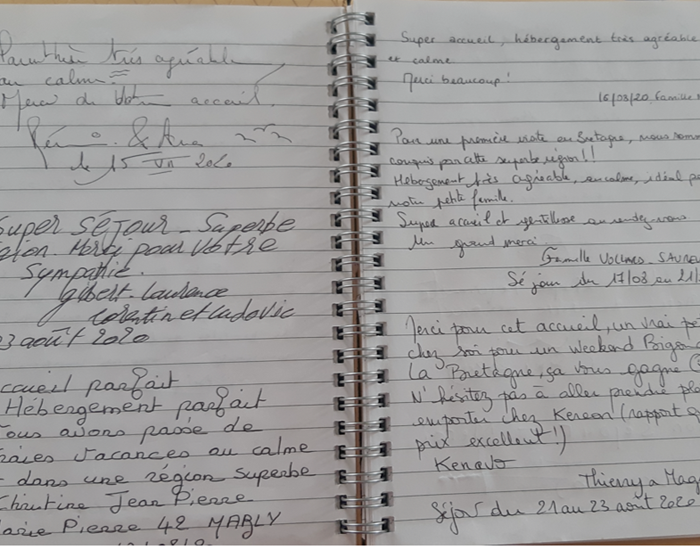 très agréable
au calme
Merci de votre accueil.
& Ana
le 15 VII 2020
Super Séjour - Superbe
Merci pour votre
Sympathie.
Gilbert. Laurence
Corentin et Ludovic
3 août 2020
ccueil parfait
Hébergement parfait
ous avons passé de
raies vacances au calme
dans une région superbe
Christine Jean Pierre
arie Pierre 42 MABLY
Super accueil, hébergement très agréable
et calme
Merci beaucoup!
16/08/20. Famille
Pour une première visite en Bretagne, nous somm
conquis par cette superbe région!!
Hébergement très agréable, au calme, idéal po
notre petite famille.
Super accueil et gentillesse au rendez-vous
Un grand merci
Famille
Séjour du 17/08 au 21/
Merci pour cet accueil, un vrai
chez soi pour un Weekend
La Bretagne, ça vous gagne
N'hésitez pas à aller prendre
emporter chez (rapport q
prix excellent!)
Kenavo
Thierry
Séjour du 21 au 23 août 2020